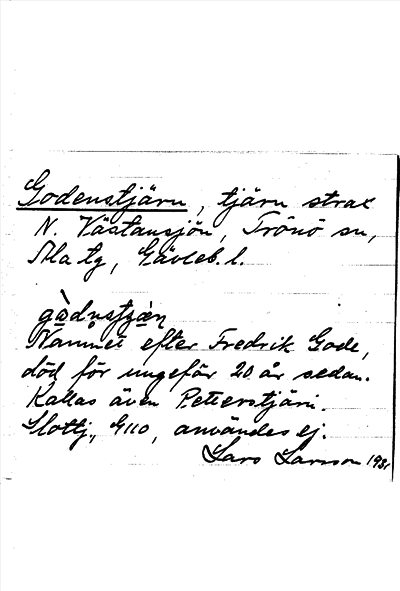 Godenstjärn, tjärn strax
N. Västansjön, Trönö sn,
Ala tg, Gävleb. l.
gàdnstjæ̀n
Namnet efter Fredrik Gode,
död för ungefär 20 år sedan.
Kallas även Petterstjärn.
Slottj., G110, användes ej.
Lars Larsson 1931